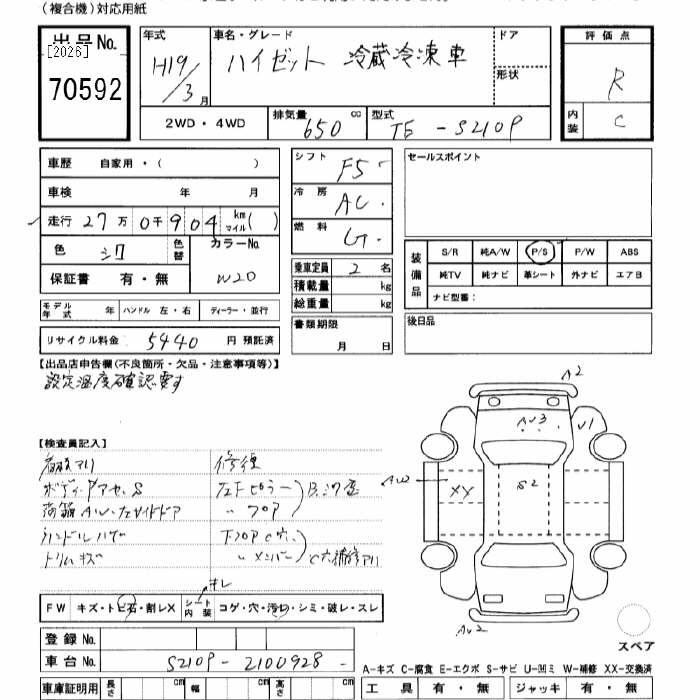 （複合機）対応用紙
出品No.
[2026]
70592
年式
H19/3月
車名・グレード
ハイゼット 冷蔵冷凍車
ドア
形状
評価点
R
内装
C
2WD・4WD
排気量
650 cc
型式
TE-S210P
車歴 自家用・( )
車検 年 月
走行 27万0千904 km マイル ( )
色 シロ
色替
カラーNo.
W20
保証書 有・無
モデル年式 年 ハンドル 左・右 ディーラー・並行
リサイクル料金 5440 円 預託済
シフト F5
冷房 AC
燃料 G
乗車定員 2 名
積載量 kg
総重量 kg
書類期限
月 日
セールスポイント
装備品
S/R 純A/W P/S P/W ABS
純TV 純ナビ 革シート 外ナビ エアB
ナビ型番：
後日品
【出品店申告欄(不良箇所・欠品・注意事項等)】
設定温度確認要す
【検査員記入】
修復
ボディ
S
左Fピラー
B
トリムキズ
FW キズ・トビ石・割レX
シート内装
キレ
コゲ・穴・汚レ・シミ・破レ・スレ
登録No.
車台No. S210P-2100928
車庫証明用 長さ cm 幅 cm 高さ cm
A2
AU3
U1
AW
XX
S2
AU2
スペア
A-キズ C-腐食 E-エクボ S-サビ U-凹ミ W-補修 XX-交換済
工具 有・無 ジャッキ 有・無